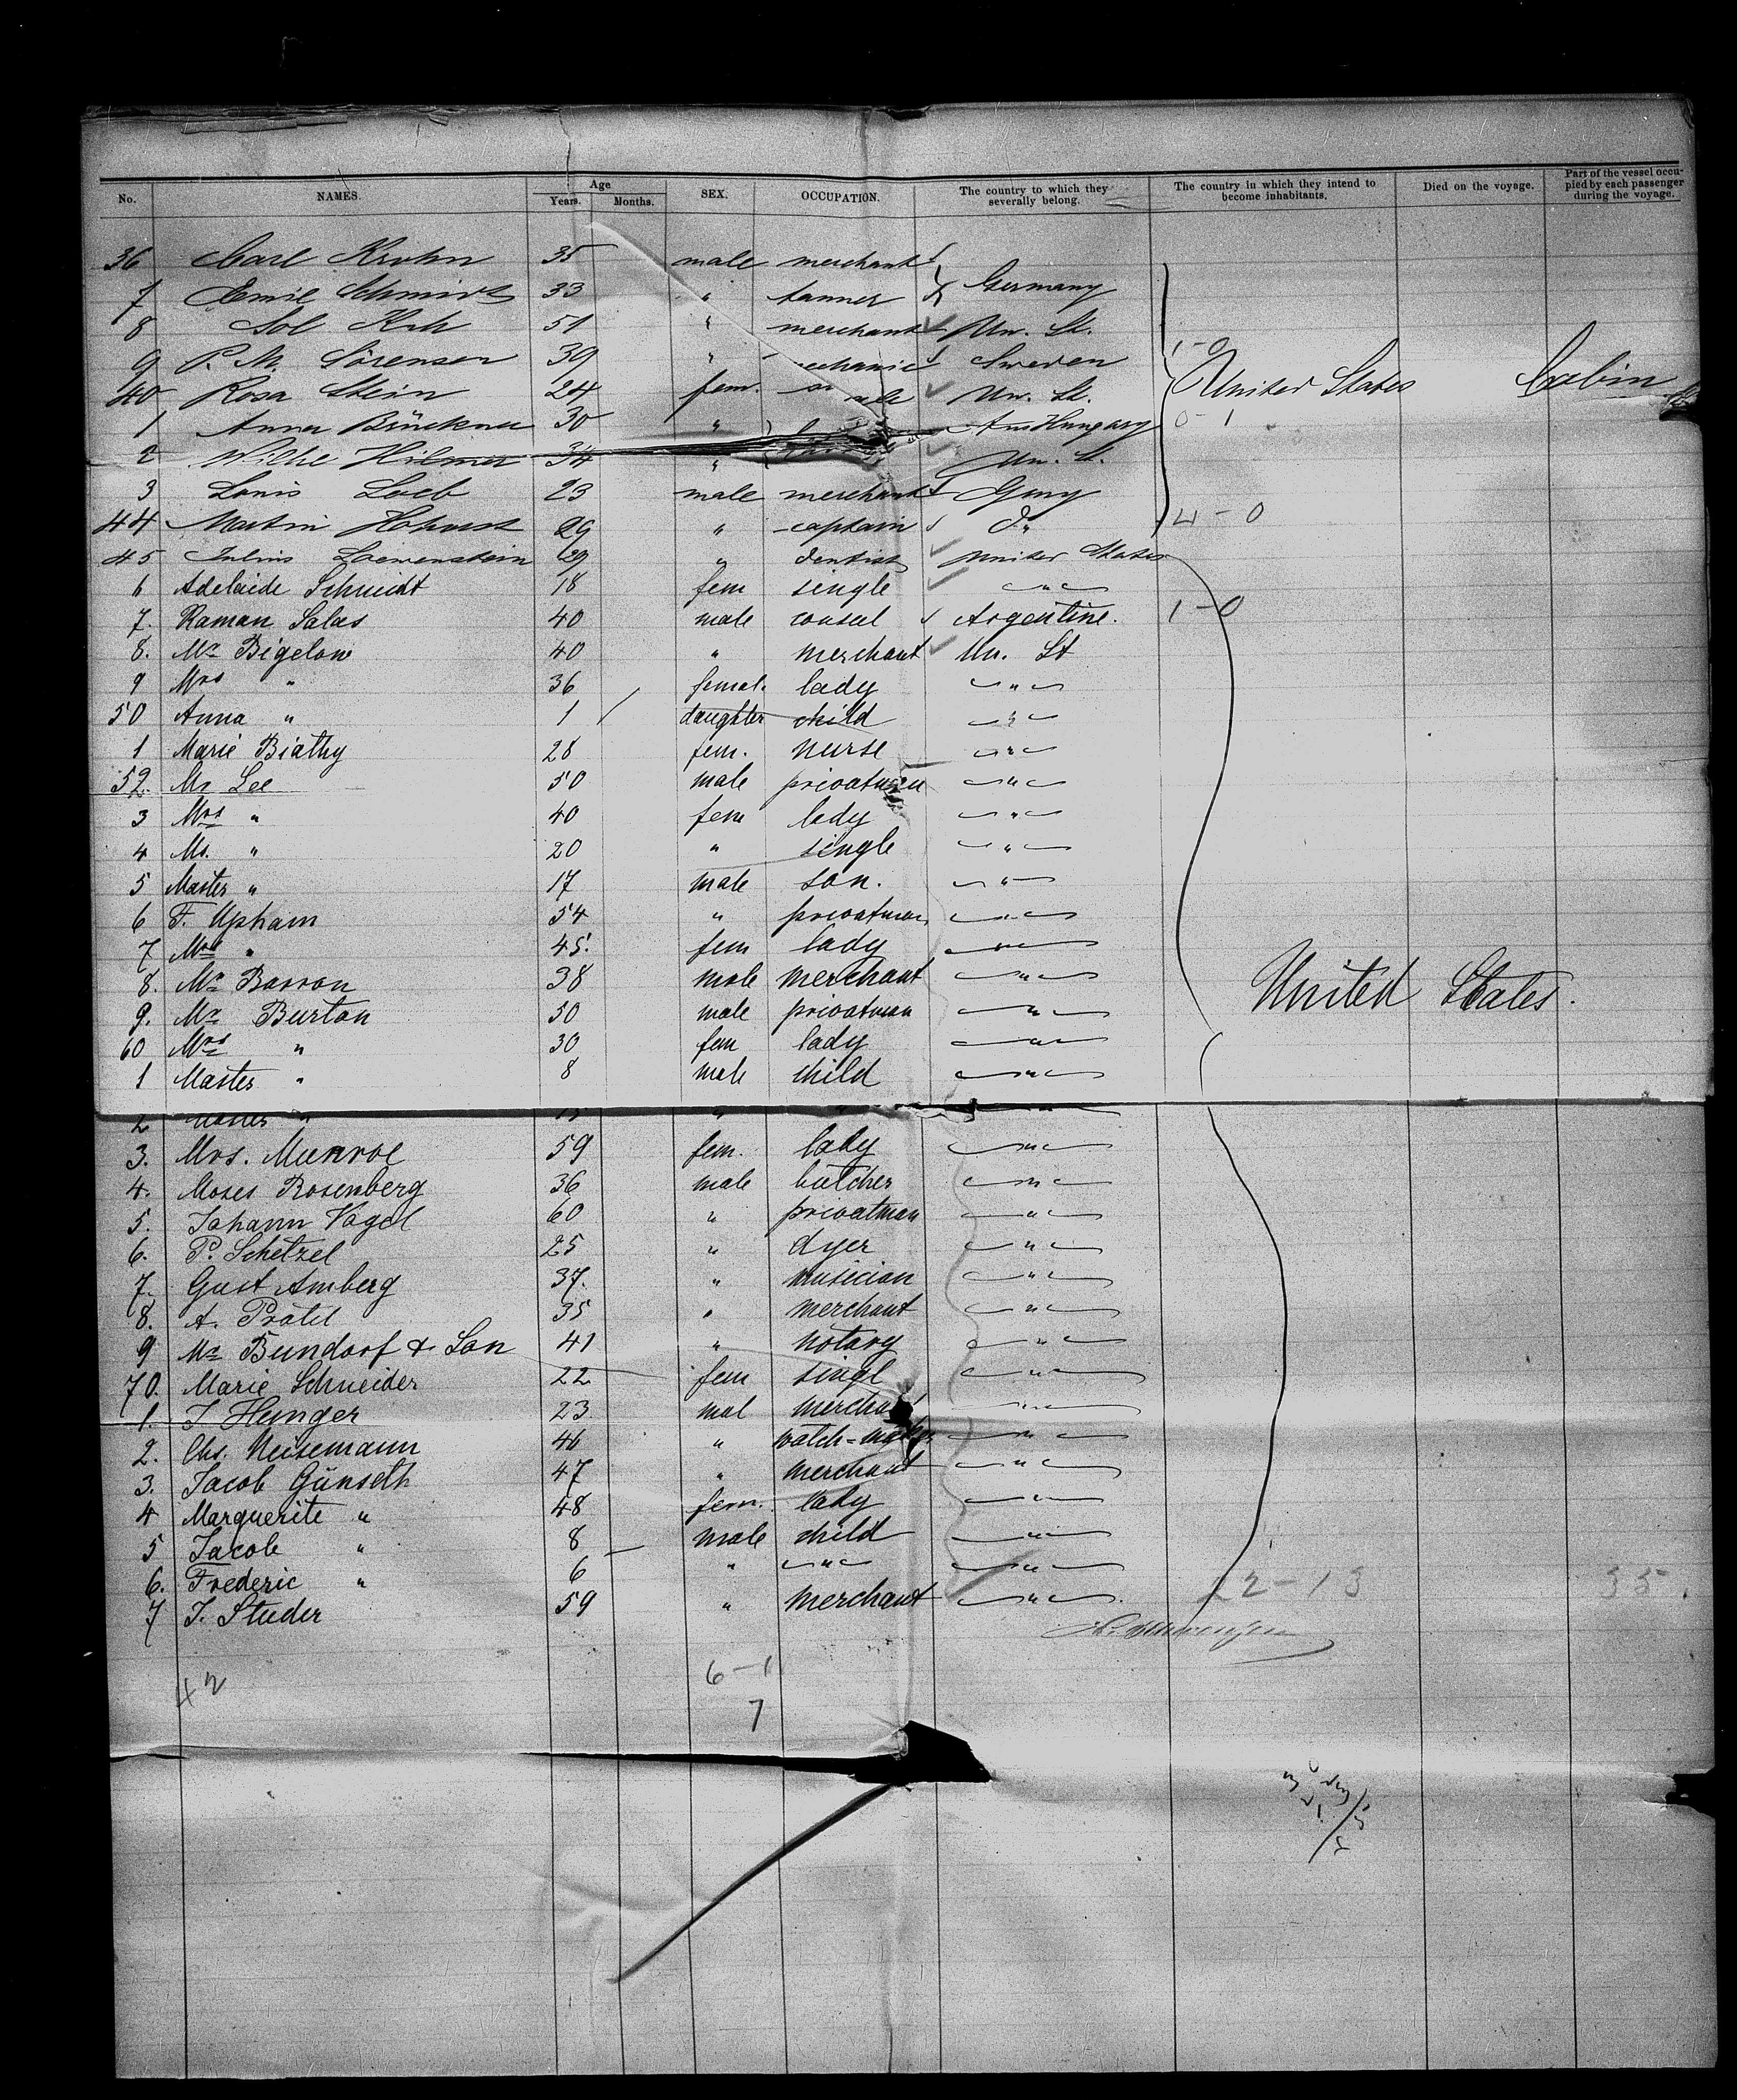 No. NAMES. Age Years. Months. SEX. OCCUPATION. The country to which they severally belong. The country in which they intend to become inhabitants. Died on the voyage. Part of the vessel occupied by each passenger during the voyage.
36 Carl Krohn 35 male merchant
7 Emil Schmidt 33 " tanner Germany
8 Sol 51 " merchant Un. St.
9 P. M. Sörensen 39 " mechanic Sweden 1-0
40 Rosa Stein 24 fem. Un. St. United States Cabin
1 Anna Brückner 30 " Hungary 0-1
2 Wilhe Hilmer 34 " Un. St.
3 Louis Loeb 23 male merchant Gmy
44 Martin 29 " captain do 4-0
45 Julius Loewenstein 29 " dentist United States
6 Adelaide Schmidt 18 fem single " 
7. Raman Salas 40 male consul Argentine. 1-0
8. Mr Bigelow 40 " merchant Un. St
9 Mrs " 36 femal. lady "
50 Anna " 1 daughter child "
1 Marie Biathy 28 fem. nurse "
52. Mr Lee 50 male privatman "
3 Mrs " 40 fem lady "
4 Ms. " 20 " single "
5 Master " 17 male son. "
6 F. Upham 54 " privatman "
7 Mrs " 45. fem lady "
8. Mr Barron 38 male merchant "
9. Mr Burton 50 male privatman " United States.
60 Mrs " 30 fem lady "
1 Master " 8 male child "
2 Master " " " "
3. Mrs. Munroe 59 fem. lady "
4. Moses Rosenberg 36 male butcher "
5. Johann Vogel 60 " privatman "
6. P. Schetzel 25 " dyer "
7. Gust Amberg 37. " musician "
8. A. 35 " merchant "
9 Mr Bundorf & Son 41 " notary "
70. Marie Schneider 22 fem singl "
1. J Hunger 23 mal merchant "
2. Chs. Neusemann 46 " watch-maker "
3. Jacob Günseth 47 " merchant "
4 Marguerite " 48 fem. lady "
5 Jacob " 8 male child "
6. Frederic " 6 " " "
7 J. Studer 59 " merchant "
22-13 35.
42 6-1
7